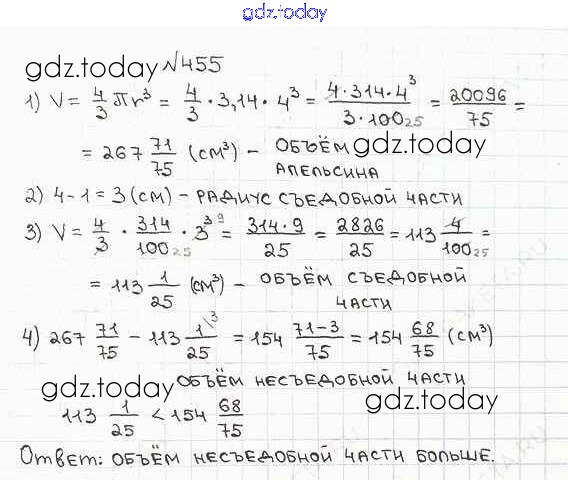 gdz.today
gdz.today №455
1) V = 4/3 πr³ = 4/3 · 3,14 · 4³ = 4·314·4³/3·100 25 = 20096/75 =
= 267 71/75 (см³) – ОБЪЁМ АПЕЛЬСИНА
gdz.today
2) 4-1=3 (см) – РАДИУС СЪЕДОБНОЙ ЧАСТИ
3) V = 4/3 · 314/100 25 · 3³ 9 = 314·9/25 = 2826/25 = 113 4/100 25 =
= 113 1/25 (см³) – ОБЪЁМ СЪЕДОБНОЙ ЧАСТИ
4) 267 71/75 – 113 1\3/25 = 154 71-3/75 = 154 68/75 (см³)
ОБЪЁМ НЕСЪЕДОБНОЙ ЧАСТИ
gdz.today gdz.today
113 1/25 < 154 68/75
Ответ: ОБЪЁМ НЕСЪЕДОБНОЙ ЧАСТИ БОЛЬШЕ.